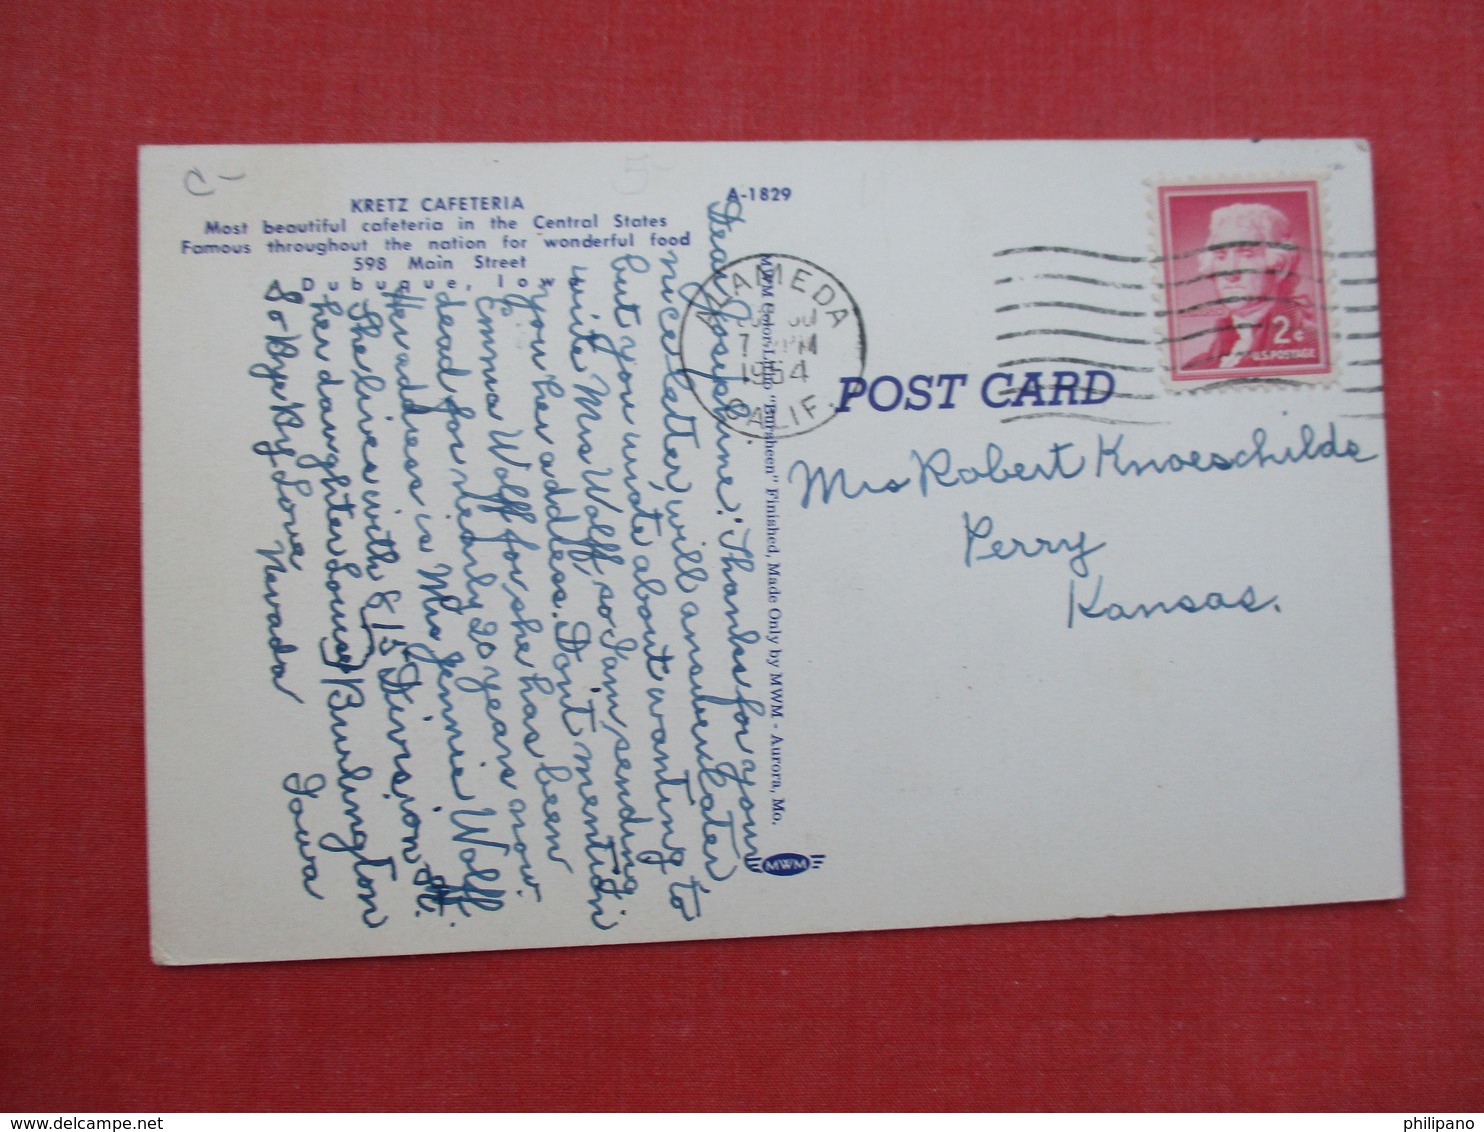 C-
KRETZ CAFETERIA
Most beautiful cafeteria in the Central States
Famous throughout the nation for wonderful food
598 Main Street
Dubuque, Iowa
A-1829
Dear Josephine: Thanks for your
nice letter, will answer later
but you wrote about wanting to
write Mrs Wolff, so I am sending
you her address. Dont mention
Emma Wolff for she has been
dead for nearly 20 years now.
Her address is Mrs Jennie Wolff.
She lives with 815 Division St.
her daughter Louise Burlington
So Bye By Love Iowa
Nevada
MWM Color-Litho "Bursheen" Finished, Made Only by MWM - Aurora, Mo.
MWM
ALAMEDA
7 PM
1954
CALIF.
2¢
U.S. POSTAGE
POST CARD
Mrs Robert Knoeschilds
Perry
Kansas.
philipano